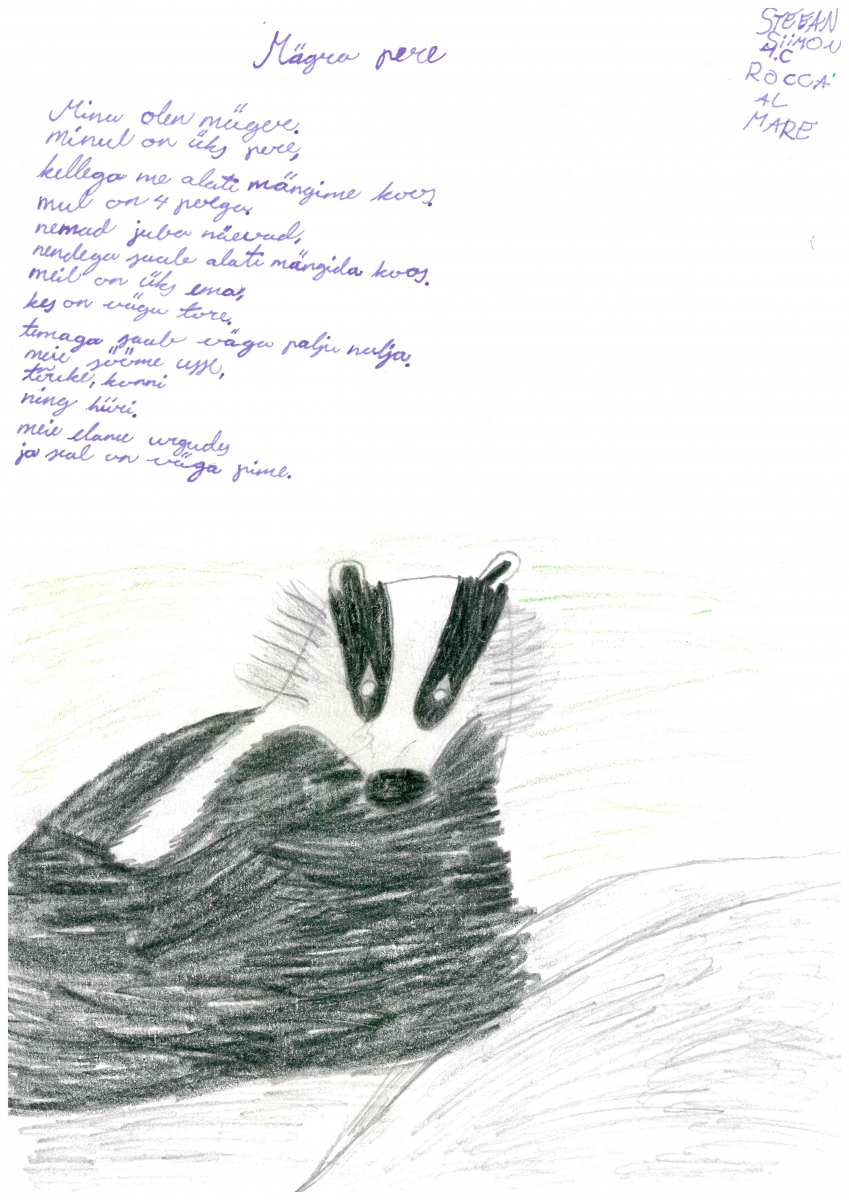 Mägra pere
STEFAN
SIIMON
4.C
ROCCA
AL
MARE
Mina olen mäger.
minul on üks pere,
kellega me alati mängime koos.
mul on 4 poega,
nemad juba näevad,
nendega saab alati mängida koos.
meil on üks ema,
kes on väga tore.
temaga saab väga palju nalja.
meie sööme usse,
tõuke, konni
ning hiiri.
meie elame urgudes
ja seal on väga pime.